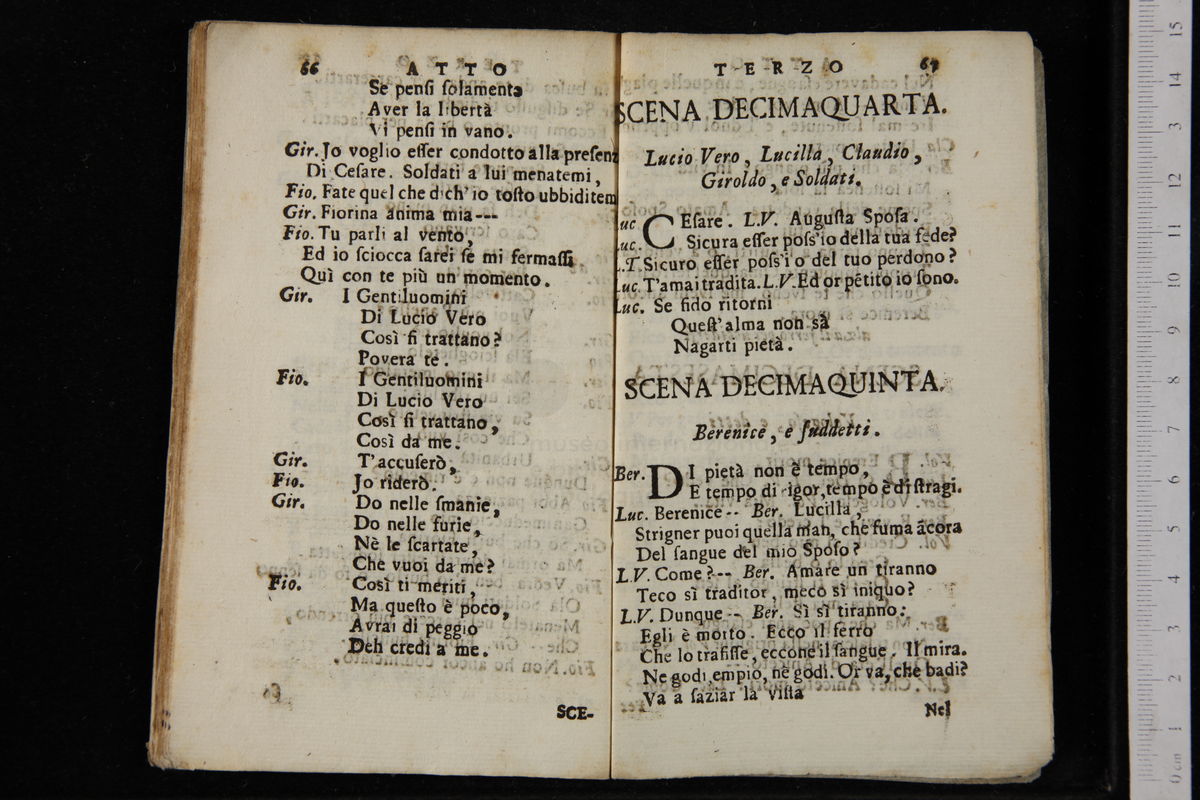 66 ATTO
Se pensi solamente
Aver la libertà
Vi pensi in vano.
Gir. Jo voglio esser condotto alla presenz
Di Cesare. Soldati a lui menatemi,
Fio. Fate quel che dich' io tosto ubbiditem
Gir. Fiorina anima mia---
Fio. Tu parli al vento,
Ed io sciocca sarei se mi fermassi
Quì con te più un momento.
Gir. I Gentiluomini
Di Lucio Vero
Così si trattano?
Povera te.
Fio. I Gentiluomini
Di Lucio Vero
Così si trattano,
Così da me.
Gir. T'accuserò;
Fio. Jo riderò.
Gir. Do nelle smanie,
Do nelle furie,
Nè le scartate,
Che vuoi da me?
Fio. Così ti meriti,
Ma questo è poco,
Avrai di peggio
Deh credi a me.
SCE-
TERZO 67
SCENA DECIMAQUARTA.
Lucio Vero, Lucilla, Claudio,
Giroldo, e Soldati.
Luc CEsare. L.V. Augusta Sposa.
Luc. Sicura esser poss'io della tua fede?
L.T. Sicuro esser poss'io del tuo perdono?
Luc. T'amai tradita. L.V. Ed or pētito io sono.
Luc. Se fido ritorni
Quest' alma non sà
Nagarti pietà.
SCENA DECIMAQUINTA.
Berenice, e suddetti.
Ber. DI pietà non è tempo,
E tempo di rigor, tempo è di stragi.
Luc. Berenice-- Ber. Lucilla,
Strigner puoi quella man, che fuma ācora
Del sangue del mio Sposo?
L.V. Come?-- Ber. Amare un tiranno
Teco sì traditor, meco sì iniquo?
L.V. Dunque-- Ber. Sì sì tiranno:
Egli è morto. Ecco il ferro
Che lo trafisse, eccone il sangue. Il mira.
Ne godi empio, ne godi. Or va, che badi?
Va a saziar la vista
Nel